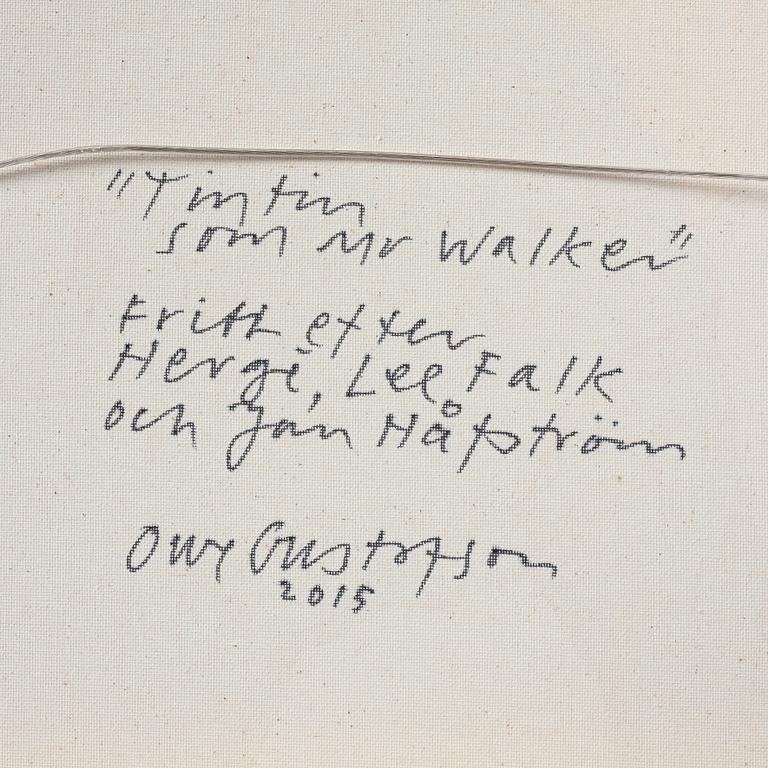 "Tintin
som Mr Walker"
Fritt efter
Hergé, Lee Falk
och Jan Håfström
Owe Gustafson
2015